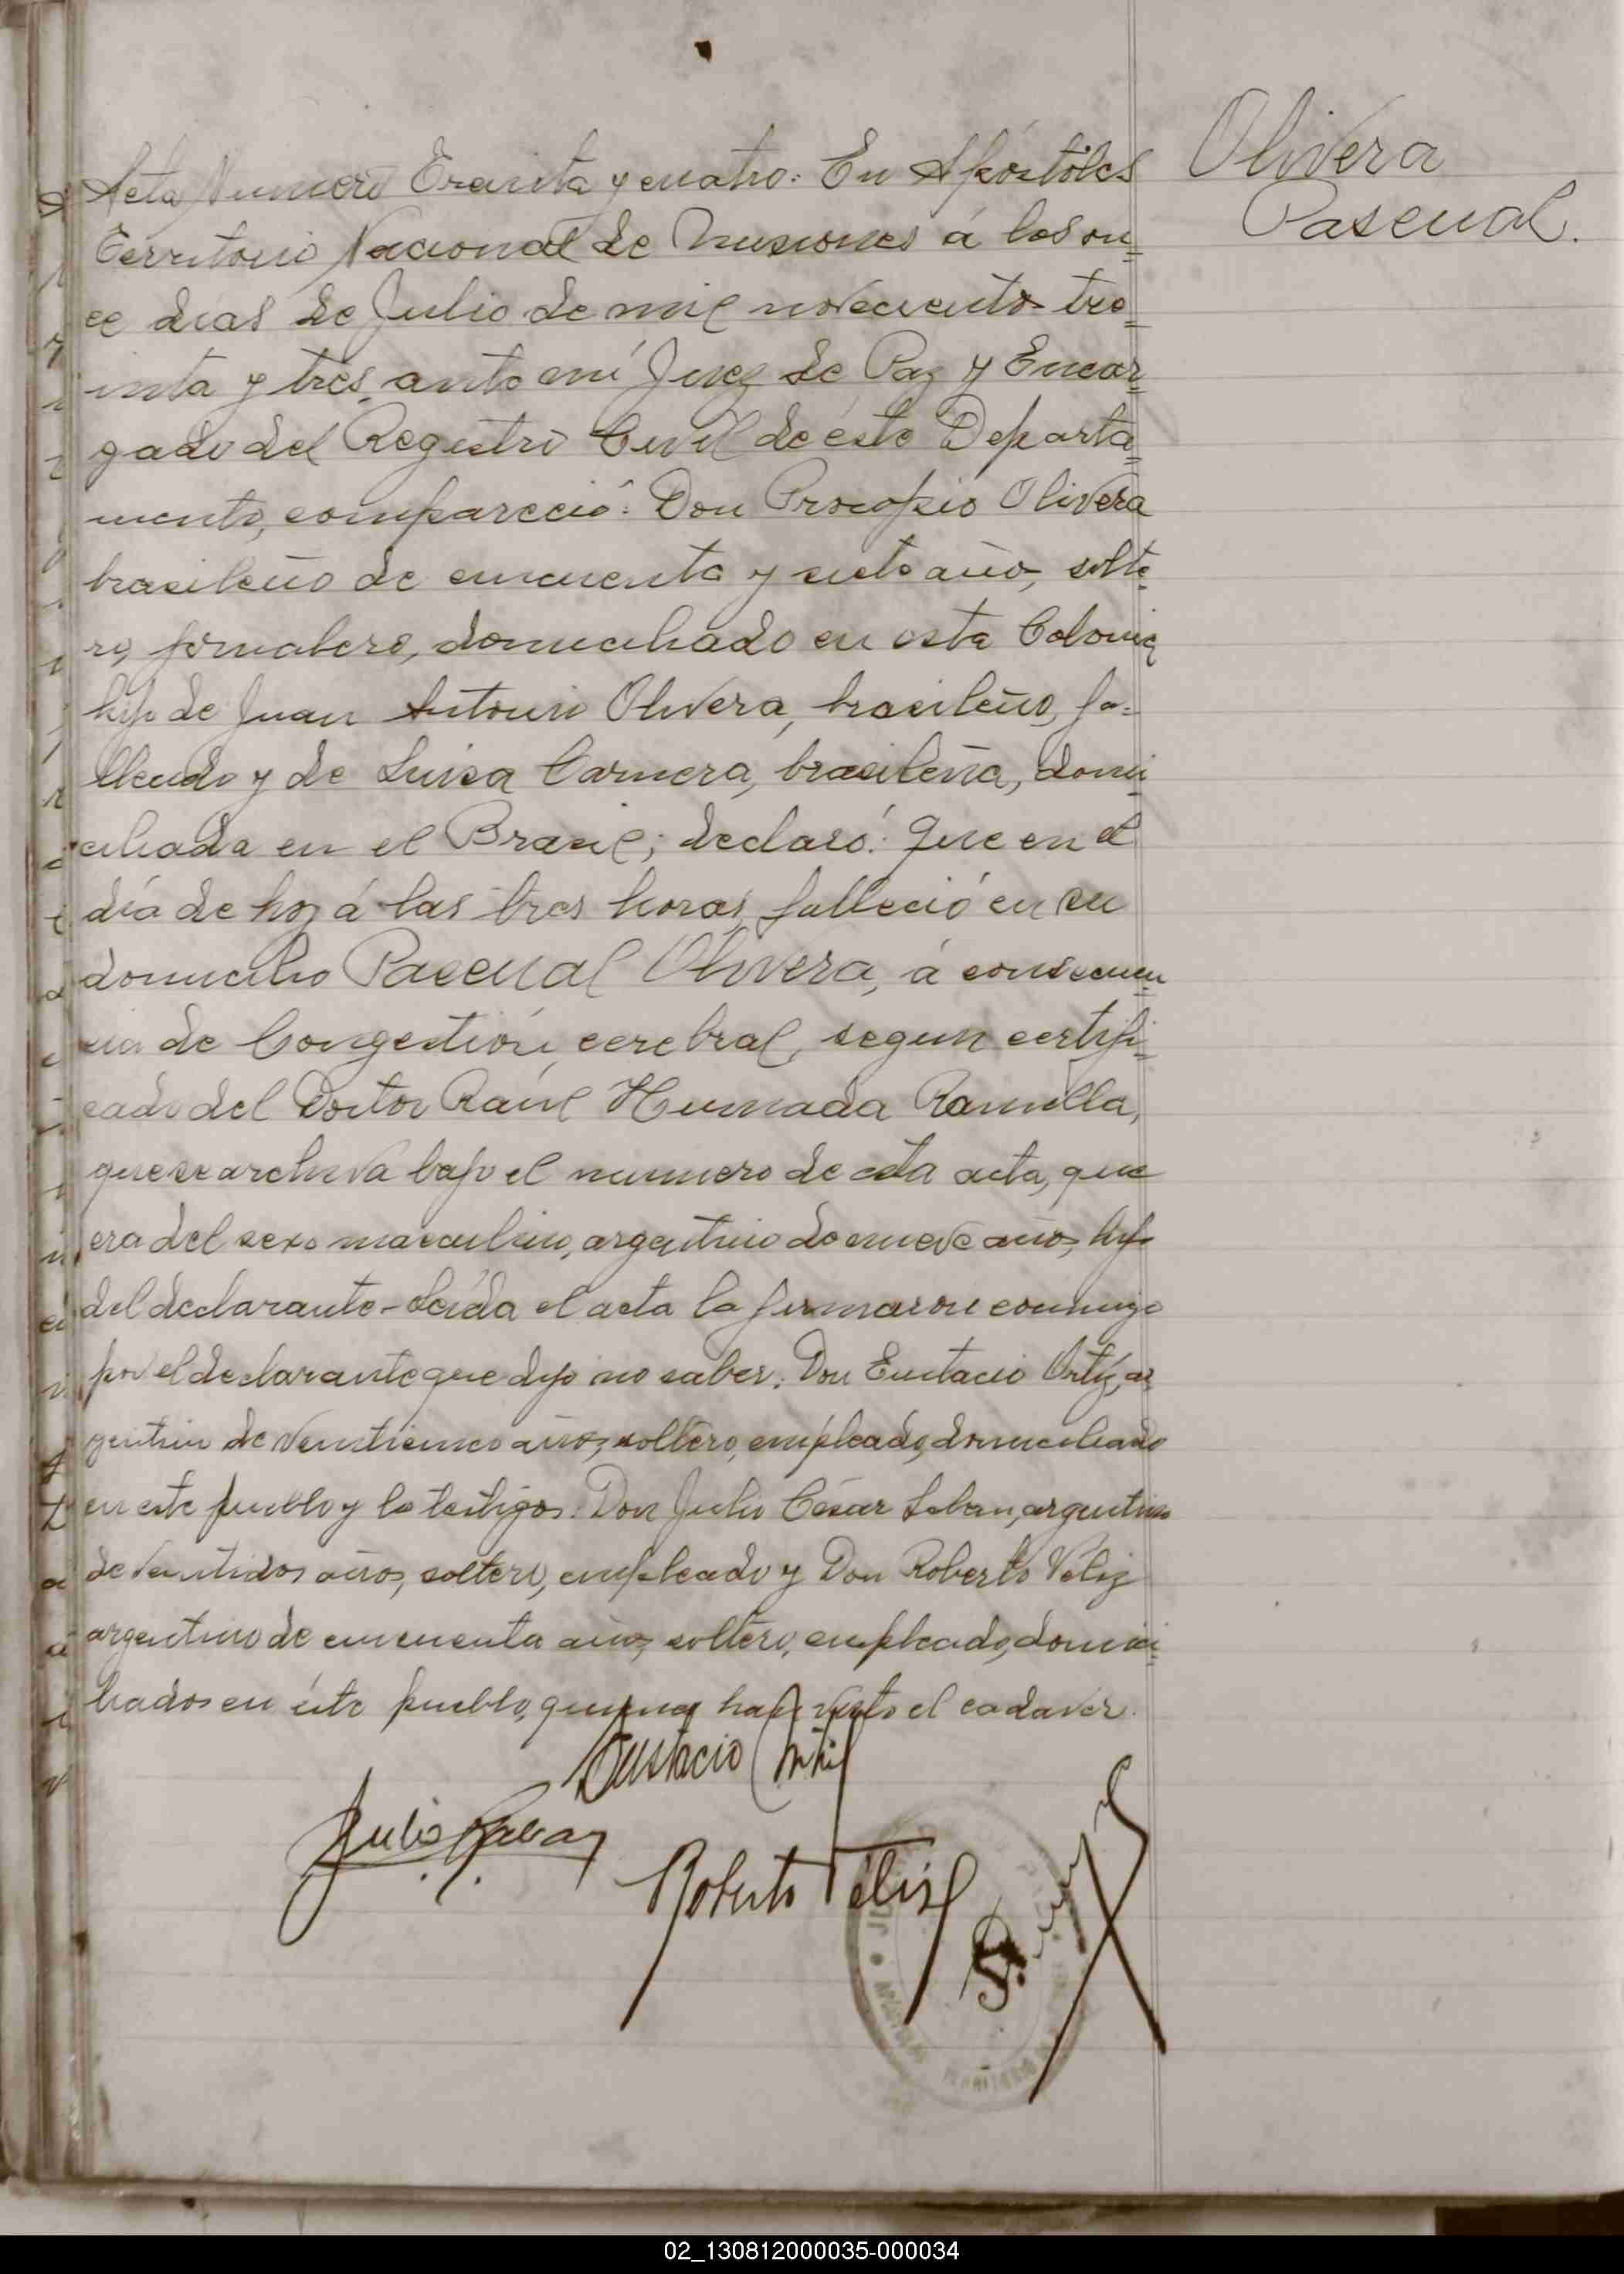 Olivera
Pascual.
Acta Numero Treinta y cuatro: En Apóstoles
Territorio Nacional de Misiones á los on=
ce días de Julio de mil novecientos tre=
inta y tres, ante mí Juez de Paz y Encar=
gado del Registro Civil de éste Departa=
mento, compareció: Don Procopio Olivera
brasileño de cincuenta y siete años, solte=
ro, jornalero, domiciliado en esta Colonia
hijo de Juan Antonio Olivera, brasileño, fa=
llecido y de Luisa Carnera, brasileña, domi=
ciliada en el Brasil; declaró: Que en el
día de hoy á las tres horas, falleció en su
domicilio Pascual Olivera, á consecuen=
cia de Congestión cerebral, segun certifi=
cado del Doctor Raúl Humada Ramella,
que se archiva bajo el numero de esta acta, que
era del sexo masculino, argentino de nueve años, hijo
del declarante - Leída el acta la firmaron conmigo
por el declarante que dijo no saber: Don Eustacio Ortíz, ar
gentino de veinticinco años, soltero, empleado, domiciliado
en este pueblo y los testigos: Don Julio César Laban, argentino
de veintidos años, soltero, empleado y Don Roberto Veliz
argentino de cincuenta años, soltero, empleado, domici=
liados en éste pueblo, quienes han visto el cadaver.
Eustacio Ortiz
Julio C. Laban
Roberto Véliz
02_130812000035-000034